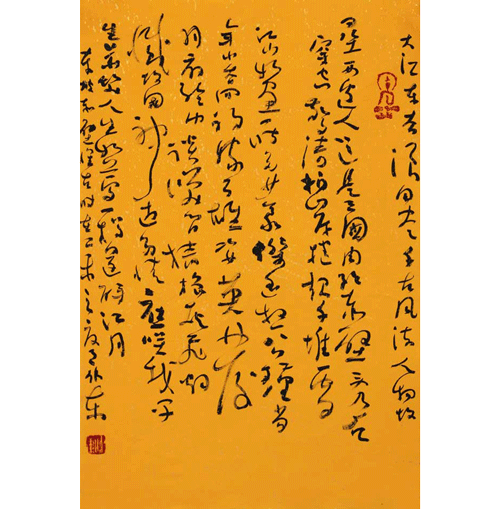 大江东去浪淘尽千古风流人物故
垒西边人道是三國周郎赤壁乱石
穿空惊涛拍岸卷起千堆雪
江山如画一时多少豪傑遥想公瑾当
年小乔初嫁了雄姿英发
羽扇纶巾谈笑间樯橹灰飞烟
灭故国神游多情应笑我早
生华发人生如梦一樽还酹江月
东坡赤壁怀古时在乙未之夏